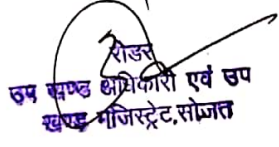 रीडर
उप खण्ड अधिकारी एवं उप
खण्ड मजिस्ट्रेट,सोजत